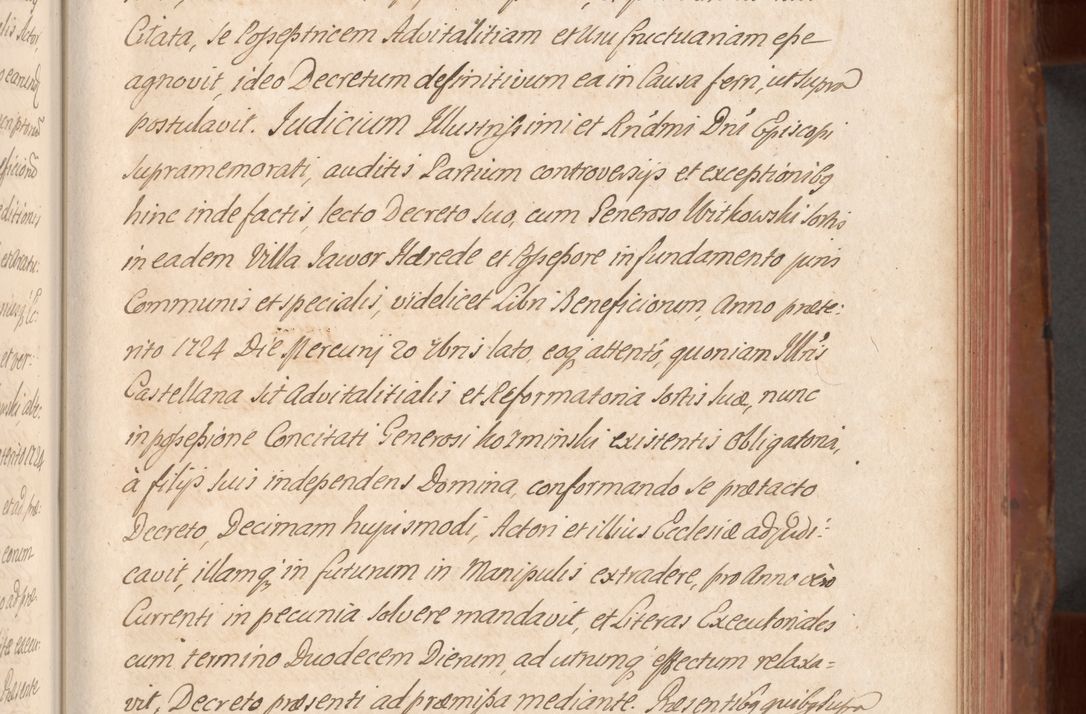 Citata, se Possestricem Advitalitiam et Usufructuariam esse
agnovit, ideo Decretum definitivum ea in Causa ferri, ut supra
postulavit. Judicium Illustrissimi et Rndmi Dni Episcopi
supramemorati, auditis Partium controversijs et exceptionibq
hinc inde factis, lecto Decreto suo, cum Generoso Witkowski sortis
in eadem Villa Jawor Hærede et Possessore in fundamento juris
Communis et specialis, videlicet Libri Beneficiorum, Anno præte:
rito 1724 Die Mercurij 20 Xbris lato, eoq attento, quoniam Illris
Castellana sit Advitalitialis et Reformatoria sortis suæ, nunc
in possessione Concitati Generosi Kozminski existentis Obligatoria,
à filijs suis independens Domina, conformando se prætacto
Decreto, Decimam hujusmodi, Actori et illius Ecclesiæ adjudi:
cavit, illamq in futurum in Manipulis extradere, pro Anno vero
Currenti in pecunia solvere mandavit, et Literas Executoriales
cum termino Duodecem Dierum, ad utrumq effectum relaxa=
vit, Decreto præsenti ad præmissa mediante. Præsentibq quibq supra